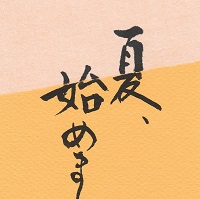 夏、
始めます